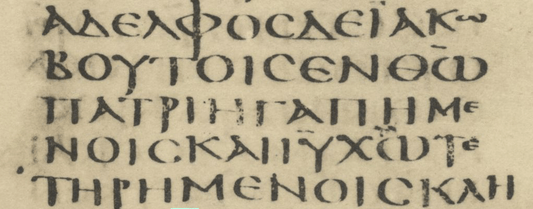 ΑΔΕΛΦΟCΔΕΪΑΚω
ΒΟΥΤΟΙCΕΝΘ̅Ω̅
ΠΑΤΡΙΗΓΑΠΗΜΕ
ΝΟΙCΚΑΙΙ̅Υ̅Χ̅Ω̅ΤΕ
ΤΗΡΗΜΕΝΟΙCΚΛΗ